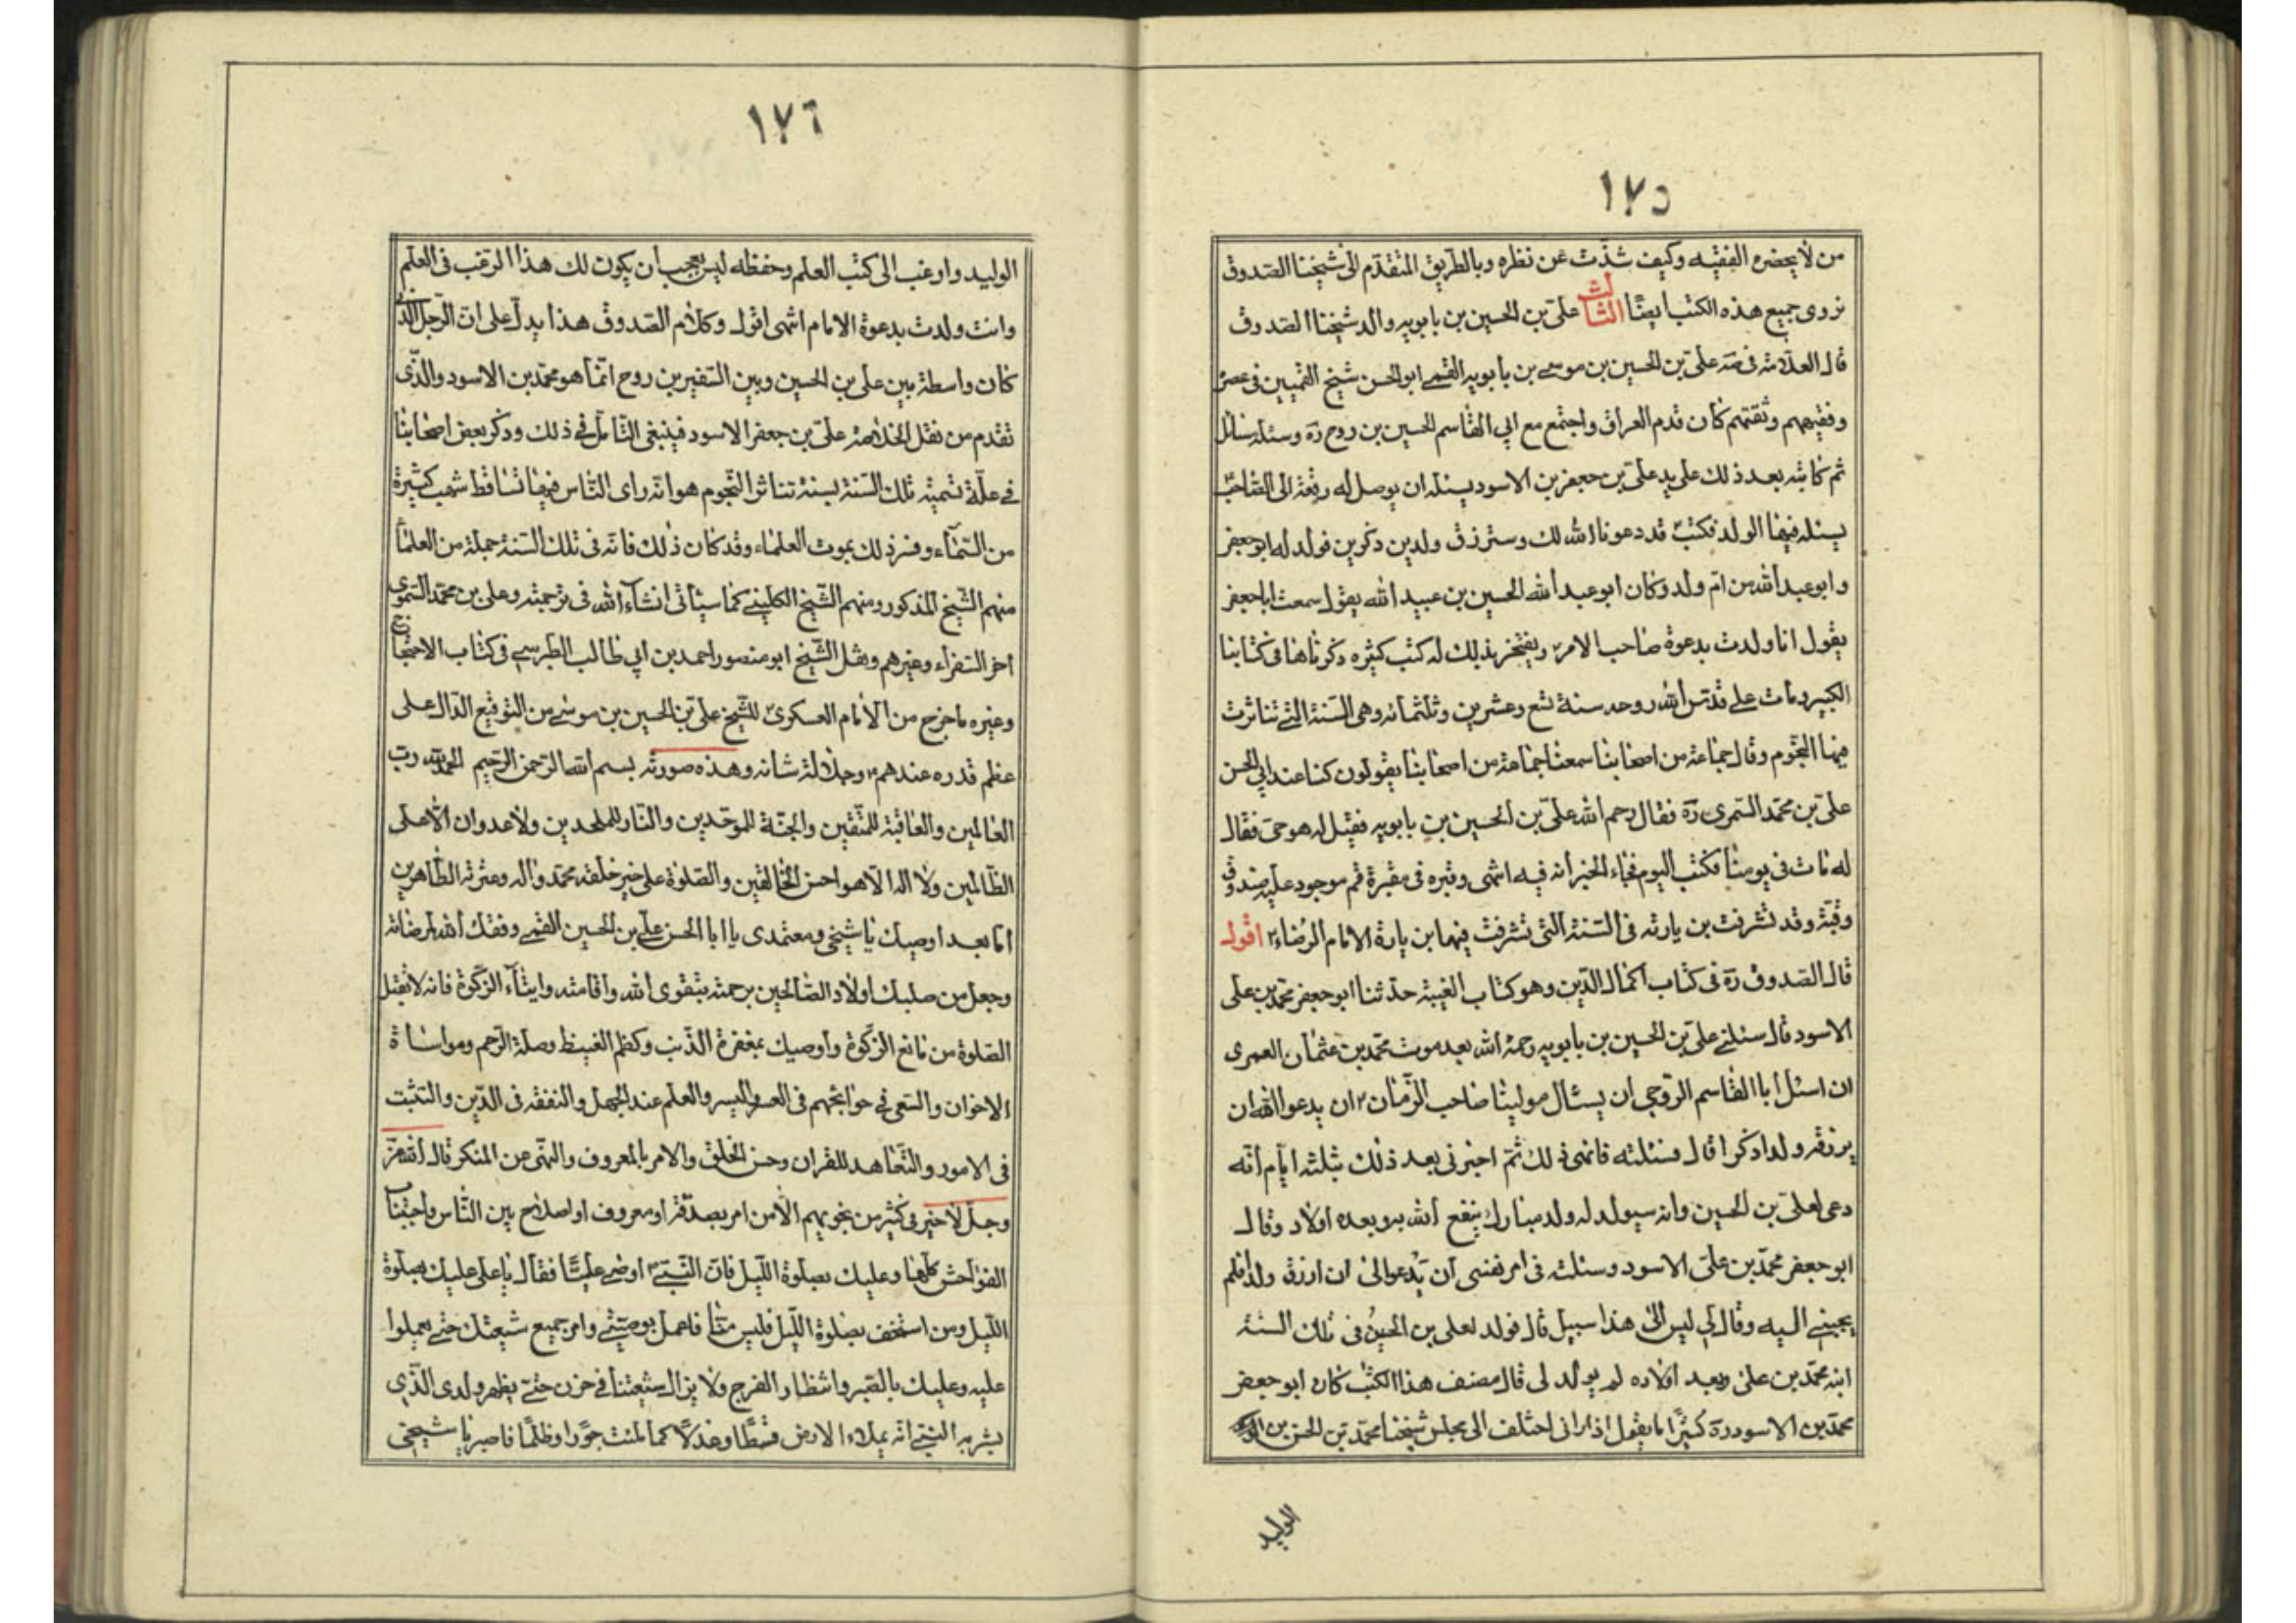 ١٧٥
من لا يحضره الفقيه وكيف شذّت عن نظره وبالطريق المتقدّم الى شيخنا الصدوق
نروى جميع هذه الكتب ايضًا الثالث علىّ بن الحسين بن بابويه والد شيخنا الصدوق
قال العلامة فى صه علىّ بن الحسين بن موسى بن بابويه القمى ابو الحسن شيخ القميين فى عصره
وفقيههم وثقتهم كان قدم العراق واجتمع مع ابي القاسم الحسين بن روح ره وسئله مسائل
ثم كاتبه بعد ذلك على يد علىّ بن جعفر بن الاسود يسئله ان يوصل له رقعة الى الصاحب
يسئله فيها الولد فكتب قد دعونا الله لك وسترزق ولدين ذكرين فولد له ابو جعفر
وابو عبد الله من امّ ولد وكان ابو عبد الله الحسين بن عبيد الله يقول سمعت ابا جعفر
يقول انا ولدت بدعوة صاحب الامر ويفتخر بذلك له كتب كثيره ذكرناها فى كتابنا
الكبير ومات على قدّس الله روحه سنة تسع وعشرين وثلثمائه وهى السنة التى تناثرت
فيها النجوم وقال جماعة من اصحابنا سمعنا جماعة من اصحابنا يقولون كنا عند ابي الحسن
علىّ بن محمّد السمرى ره فقال رحم الله علىّ بن الحسين بن بابويه فقيل له هو حىّ فقال
له مات فى يومنا فكتب اليوم فجاء الخبر انه فيه انتهى وقبره فى مقبرة قم موجود عليه صندوق
وقبّة وقد تشرفت بزيارته فى السّنة التى تشرفت فيها بزيارة الامام الرضاء اقول
قال الصدوق ره فى كتاب اكمال الدّين وهو كتاب الغيبة حدثنا ابو جعفر محمد بن على
الاسود قال سئلنى علىّ بن الحسين بن بابويه رحمه الله بعد موت محمّد بن عثمان العمرى
ان اسئل ابا القاسم الروحى ان يسئال مولينا صاحب الزمان ان يدعو الله ان
يرزقه ولدا ذكرا قال فسئلته فانهى ذلك ثمّ اخبرنى بعد ذلك بثلثه ايّام انّه
دعى لعلىّ بن الحسين وانه سيولد له ولد مبارك ينفع الله به وبعده اولاد وقال
ابو جعفر محمّد بن علىّ الاسود وسئلته فى امر نفسى ان يدعو الىّ ان ارزق ولدا فلم
يجبنى اليه وقال لى ليس الى هذا سبيل قال فولد لعلى بن الحسين فى تلك السنة
ابنه محمّد بن على وبعد اولاده لم يولد لى قال مصنف هذا الكتب كان ابو جعفر
محمّد بن الاسود ره كثيرًا ما يقول اذا رانى اختلف الى مجلس شيخنا محمّد بن الحسن بن الوليد
الوليد
١٧٦
الوليد وارغب الى كتب العلم وحفظه ليس بعجب ان يكون لك هذا الرغب فى العلم
وانت ولدت بدعوة الامام انتهى اقول وكلام الصدوق هذا يدلّ على انّ الرجل الذى
كان واسطة بين على بن الحسين وبين السّفير بن روح انّما هو محمّد بن الاسود والذّى
تقدم من نقل الخلاصة علىّ بن جعفر الاسود فينبغى التّامل فى ذلك وذكر بعض اصحابنا
فى علّة تسميته تلك السّنة بسنة تناثر النّجوم هو انّه راى النّاس فيها تساقط شهب كثيرة
من السّماء وفسر ذلك بموت العلماء وقد كان ذلك فانّه فى تلك السّنة جملة من العلماء
منهم الشّيخ المذكور ومنهم الشّيخ الكلينى كما سيأتى انشاء الله فى ترجمته وعلى بن محمّد السّمرى
اخر السّفراء وغيرهم ونقل الشّيخ ابو منصور احمد بن ابي طالب الطبرسى فى كتاب الاحتجاج
وغيره ما خرج من الامام العسكرى للشّيخ على بن الحسين بن موسى من التوقيع الدّال على
عظم قدره عندهم وجلالة شانه وهذه صورته بسم الله الرّحمن الرّحيم الحمد لله رب
العالمين والعاقبة للمتّقين والجنّة للموحّدين والنّار للملحدين ولا عدوان الّا على
الظّالمين ولا اله الّا هو احسن الخالقين والصّلوة على خير خلقه محمّد واله وعترته الطّاهرين
امّا بعد اوصيك يا شيخى ومعتمدى يا ابا الحسن على بن الحسين القمى وفقك الله لمرضاته
وجعل من صلبك اولاد الصّالحين برحمته بتقوى الله واقامته وايتاء الزّكوة فانه لا تقبل
الصّلوة من مانع الزّكوة واوصيك بمغفرة الذّنب وكظم الغيظ وصلة الرّحم ومواساة
الاخوان والسّعى فى حوائجهم فى العسر واليسر والعلم عند الجهل والتفقه فى الدّين والتثبت
فى الامور والتّعاهد للقران وحسن الخلق والامر بالمعروف والنّهى عن المنكر قال الله عزّ
وجلّ لا خير فى كثير من نجويهم الّا من امر بصدقة او معروف او اصلاح بين النّاس واجتناب
الفواحش كلّها وعليك بصلوة اللّيل فانّ النّبىّ اوصى عليّا فقال يا على عليك بصلوة
اللّيل ومن استخف بصلوة اللّيل فليس منّا فاعمل بوصيّتى وامر جميع شيعتك حتى يعملوا
عليه وعليك بالصّبر وانتظار الفرج ولا يزال شيعتنا فى حزن حتّى يظهر ولدى الذّى
بشر به النبىّ انّه يملاء الارض قسطًا وعدلًا كما ملئت جورًا وظلمًا فاصبر يا شيخى